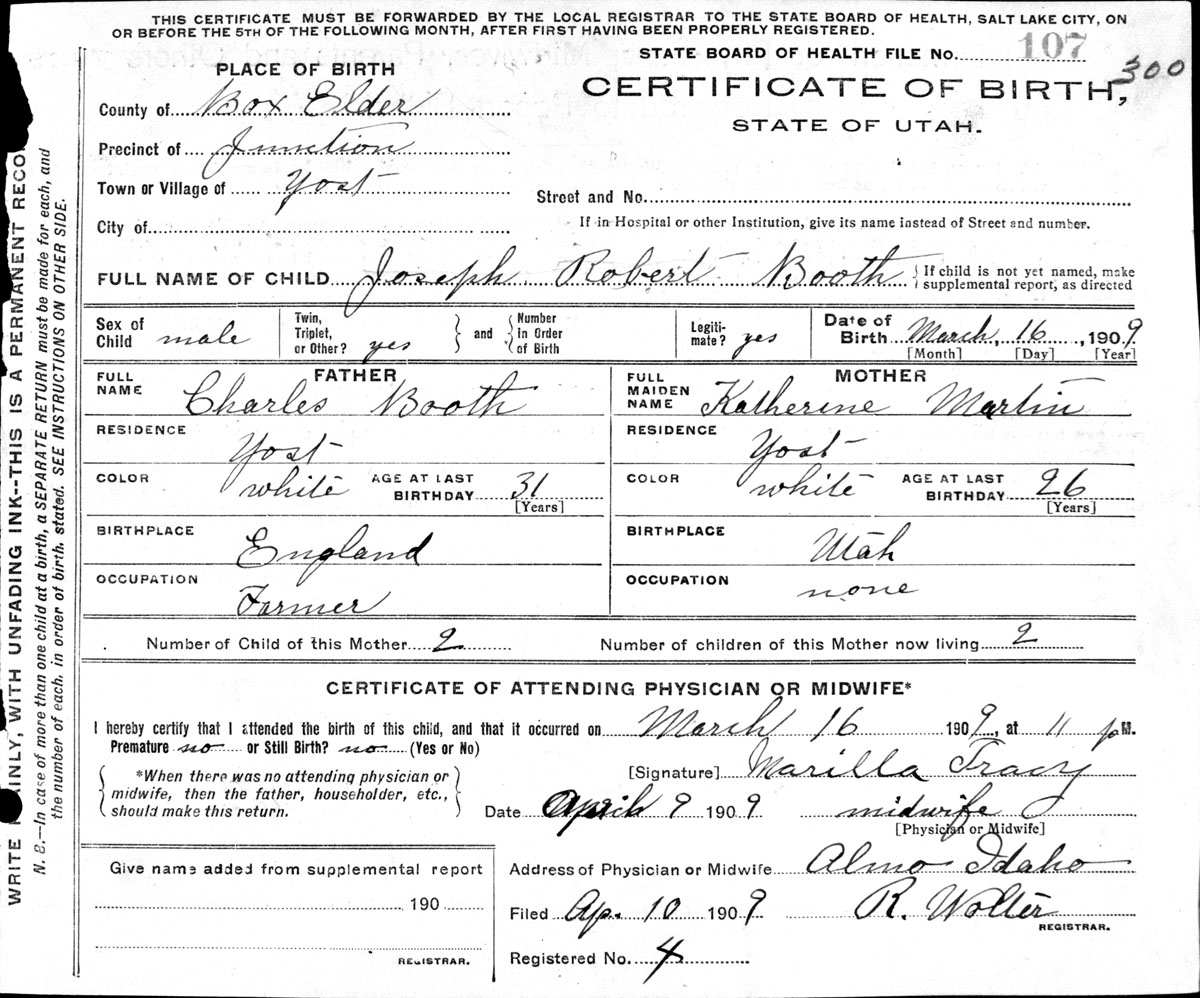 THIS CERTIFICATE MUST BE FORWARDED BY THE LOCAL REGISTRAR TO THE STATE BOARD OF HEALTH, SALT LAKE CITY, ON
OR BEFORE THE 5TH OF THE FOLLOWING MONTH, AFTER FIRST HAVING BEEN PROPERLY REGISTERED.
STATE BOARD OF HEALTH FILE No. 107
300
PLACE OF BIRTH
CERTIFICATE OF BIRTH,
STATE OF UTAH.
County of Box Elder
Precinct of Junction
Town or Village of Yost
Street and No.
City of
If in Hospital or other Institution, give its name instead of Street and number.
FULL NAME OF CHILD Joseph Robert Booth { If child is not yet named, make
supplemental report, as directed
Sex of Child male
Twin, Triplet, or Other? yes } and { Number in Order of Birth
Legiti-mate? yes
Date of Birth March, 16, 1909
[Month] [Day] [Year]
FATHER
FULL NAME Charles Booth
RESIDENCE Yost
COLOR white AGE AT LAST BIRTHDAY 31
[Years]
BIRTHPLACE England
OCCUPATION Farmer
MOTHER
FULL MAIDEN NAME Katherine Martin
RESIDENCE Yost
COLOR white AGE AT LAST BIRTHDAY 26
[Years]
BIRTHPLACE Utah
OCCUPATION none
Number of Child of this Mother 2 Number of children of this Mother now living 2
CERTIFICATE OF ATTENDING PHYSICIAN OR MIDWIFE*
I hereby certify that I attended the birth of this child, and that it occurred on March 16 1909, at 11 pM.
Premature no or Still Birth? no (Yes or No)
*When there was no attending physician or
midwife, then the father, householder, etc.,
should make this return.
[Signature] Marilla Tracy
Date April 9 1909 midwife
[Physician or Midwife]
Give name added from supplemental report
190
REGISTRAR.
Address of Physician or Midwife Almo Idaho
Filed Ap. 10 1909 R. Wolter
REGISTRAR.
Registered No. 4
WRITE PLAINLY, WITH UNFADING INK--THIS IS A PERMANENT RECO
N. B.—In case of more than one child at a birth, a SEPARATE RETURN must be made for each, and
the number of each, in order of birth, stated. SEE INSTRUCTIONS ON OTHER SIDE.